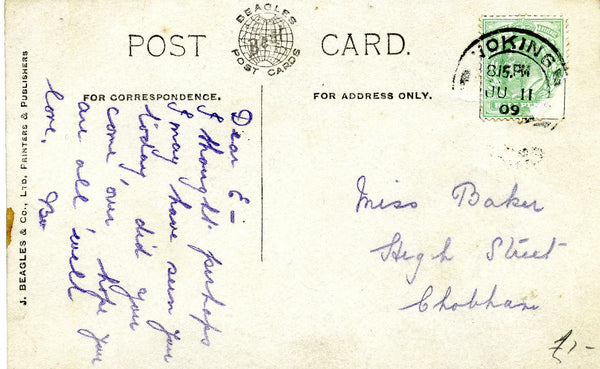 POST CARD.
BEAGLES
POST CARDS
FOR CORRESPONDENCE.
FOR ADDRESS ONLY.
J. BEAGLES & CO., LTD, PRINTERS & PUBLISHERS
WOKING
8.15 PM
JU 11
09
Dear E—
I thought perhaps
I may have seen you
today, did you
come over hope you
are all well
love,
Miss Baker
High Street
Chobham